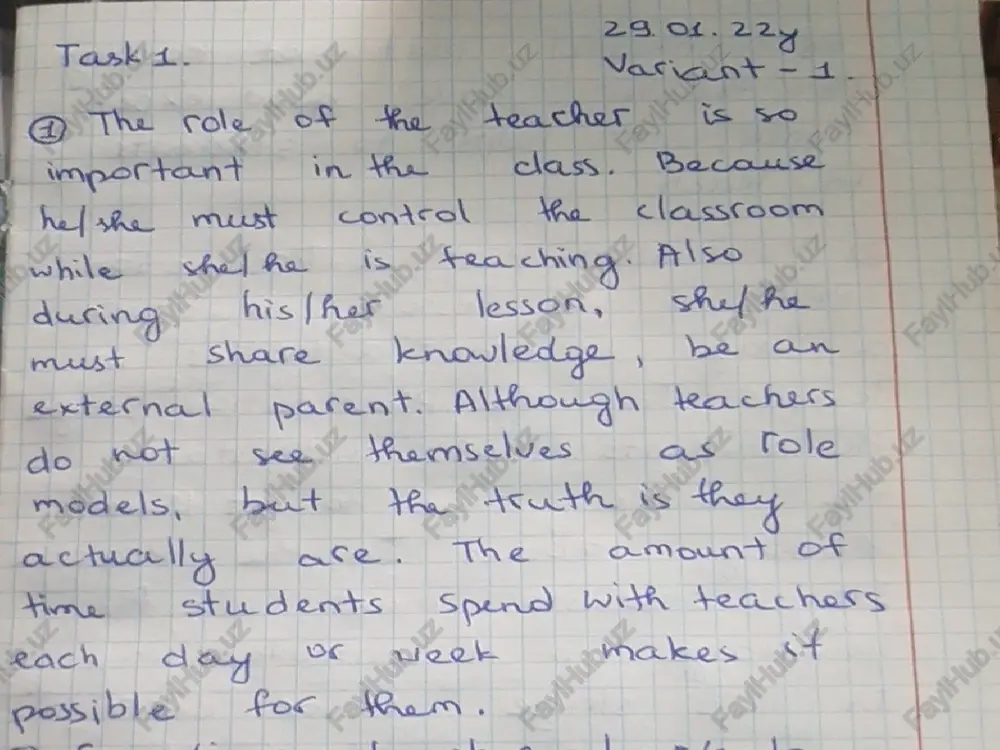 29.01.22y
Task 1.
Variant - 1.
① The role of the teacher is so
important in the class. Because
he/she must control the classroom
while she/he is teaching. Also
during his/her lesson, she/he
must share knowledge, be an
external parent. Although teachers
do not see themselves as role
models, but the truth is they
actually are. The amount of
time students spend with teachers
each day or week makes it
possible for them.
FaylHub.uz